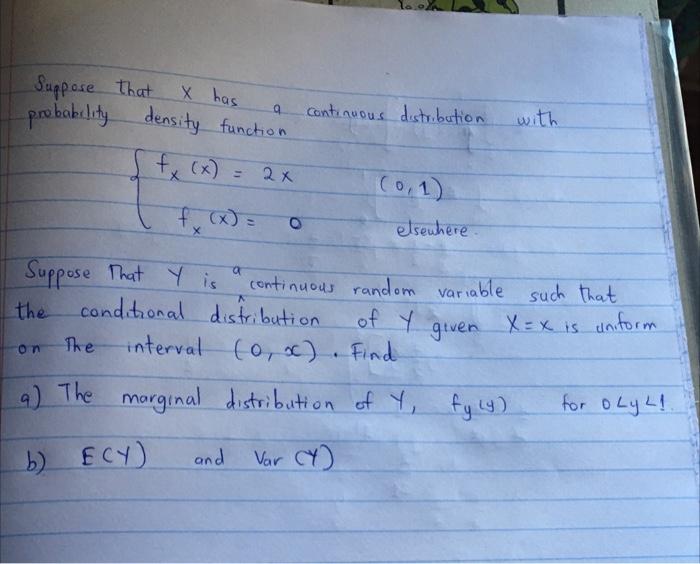 Suppose that X has a continuous distribution with
probability density function
f_x (x) = 2x (0,1)
f_x (x) = 0 elsewhere.
Suppose That Y is a continuous random variable such that
the conditional distribution of Y given X=x is uniform
on The interval (0, x). Find
a) The marginal distribution of Y, f_y(y) for 0<y<1.
b) E(Y) and Var (Y)